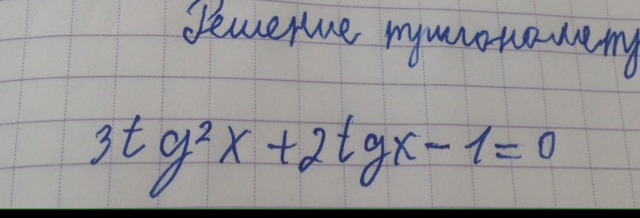 Решение тригономет
3tg²x + 2tgx - 1 = 0